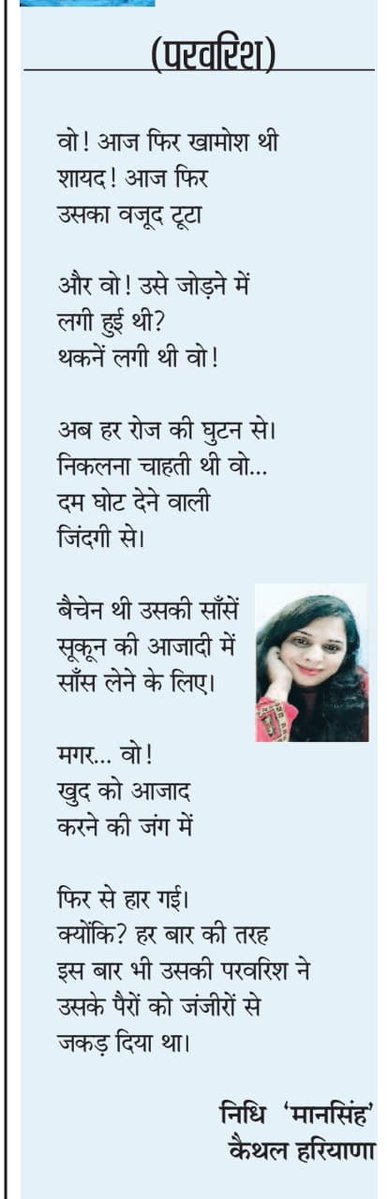 (परवरिश)
वो! आज फिर खामोश थी
शायद! आज फिर
उसका वजूद टूटा
और वो! उसे जोड़ने में
लगी हुई थी?
थकनें लगी थी वो!
अब हर रोज की घुटन से।
निकलना चाहती थी वो...
दम घोट देने वाली
जिंदगी से।
बैचेन थी उसकी साँसें
सूकून की आजादी में
साँस लेने के लिए।
मगर... वो!
खुद को आजाद
करने की जंग में
फिर से हार गई।
क्योंकि? हर बार की तरह
इस बार भी उसकी परवरिश ने
उसके पैरों को जंजीरों से
जकड़ दिया था।
निधि ‘मानसिंह’
कैथल हरियाणा